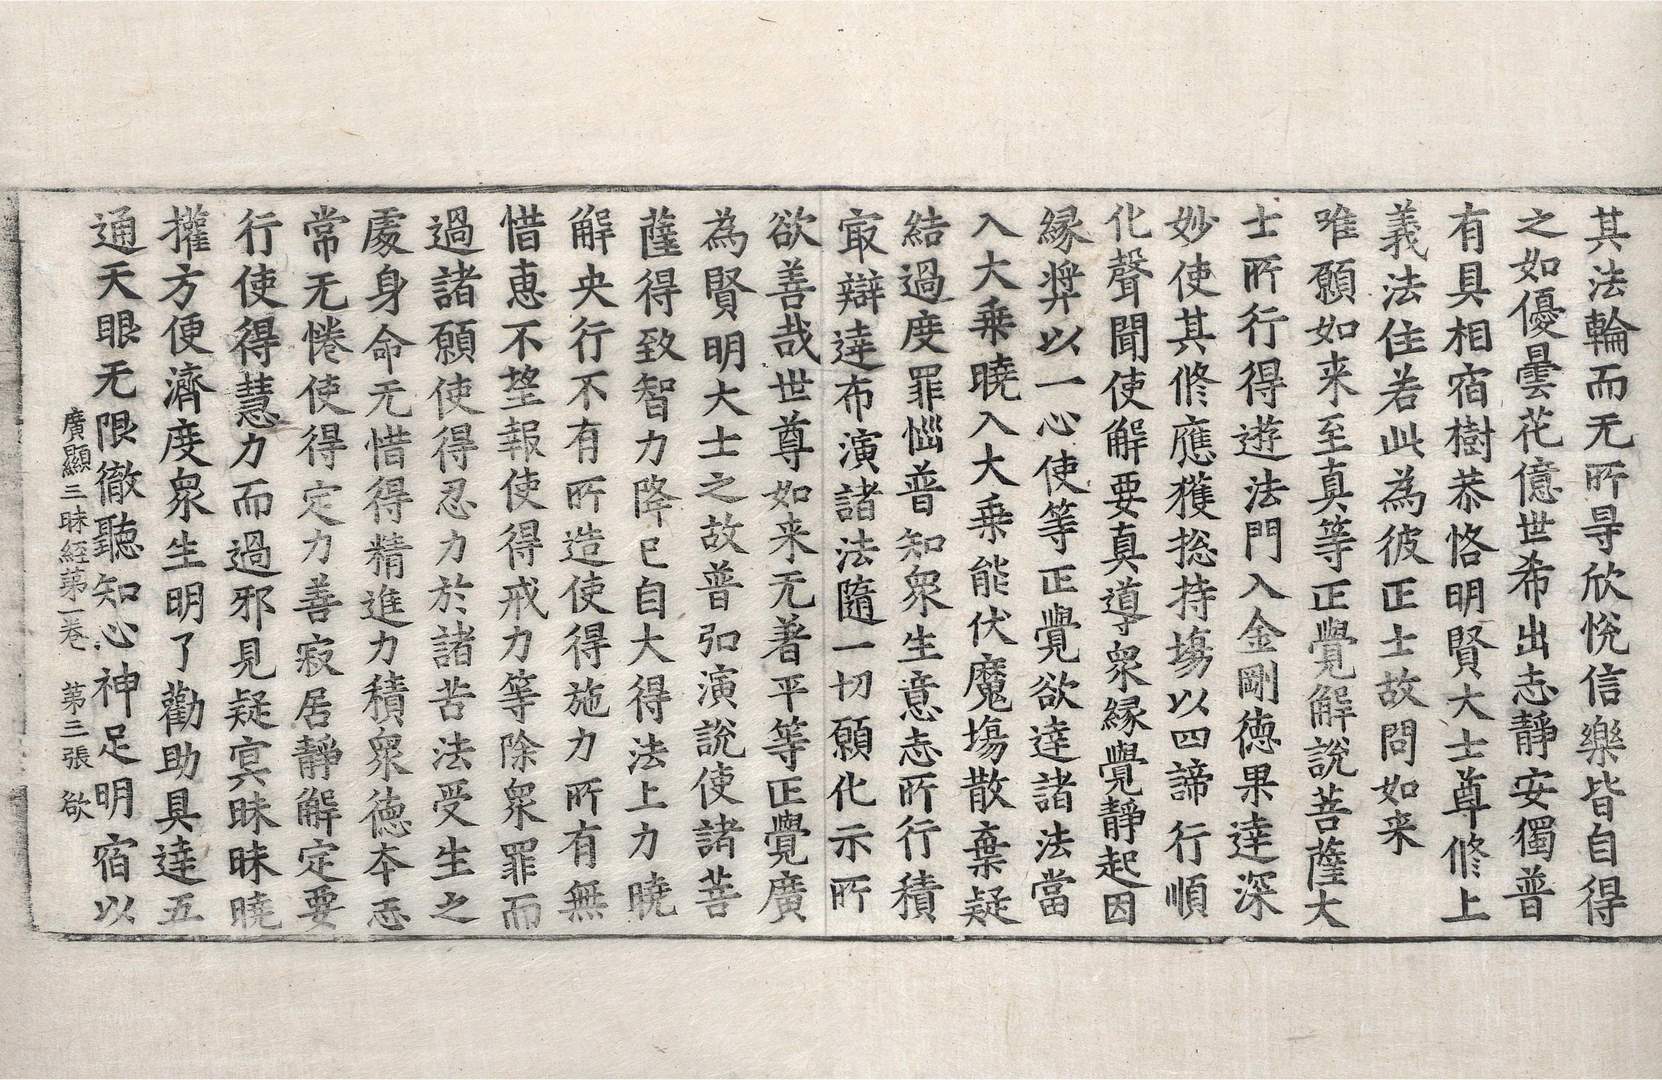 其法輪而无所㝵欣悅信樂皆自得
之如優曇花億世希出志靜安獨普
有具相宿樹恭恪明賢大士尊修上
義法住若此為彼正士故問如来
唯願如来至真等正覺解說菩薩大
士所行得遊法門入金剛德果達深
妙使其修應獲捴持場以四諦行順
化聲聞使解要真導衆緣覺靜起因
緣弊以一心使等正覺欲達諸法當
入大乗曉入大乗能伏魔場散棄疑
結過度罪惱普知衆生意志所行積
㝡辯達布演諸法隨一切願化示所
欲善哉世尊如来无著平等正覺廣
為賢明大士之故普弘演說使諸菩
薩得致智力降已自大得法上力曉
解央行不有所造使得施力所有無
惜惠不望報使得戒力等除衆罪而
過諸願使得忍力於諸苦法受生之
處身命无惜得精進力積衆德本
常无惓使得定力善寂居靜解定要
行使得慧力而過邪見疑冥昧昧曉
攉方便濟度衆生明了勸助具達五
通天眼无限徹聽知心神足明宿以
廣顯三昧經第一卷 第三張 欲